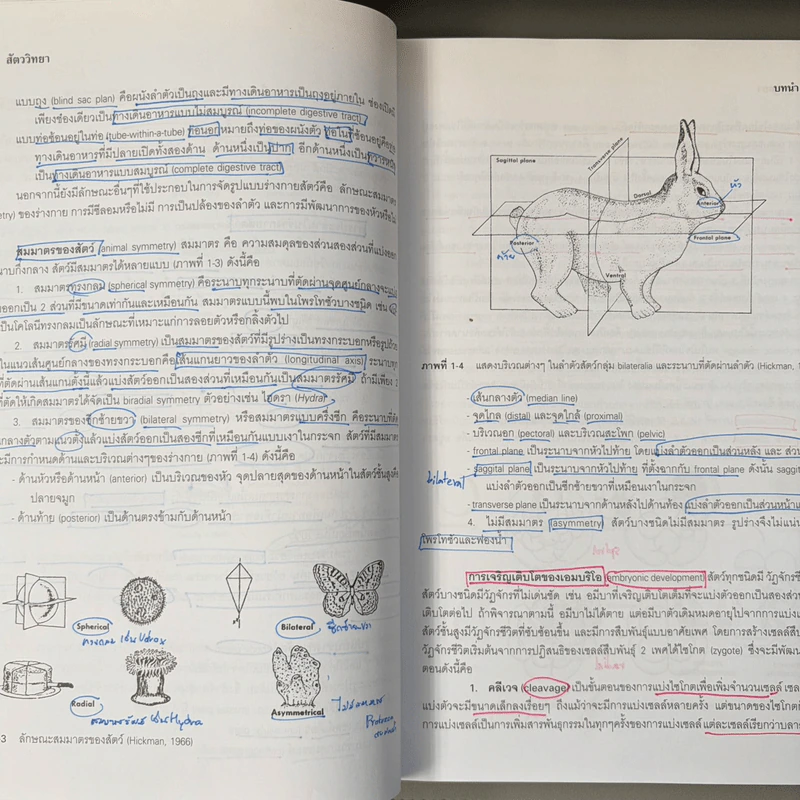 สัตววิทยา
แบบถุง (blind sac plan) คือผนังลำตัวเป็นถุงและมีทางเดินอาหารเป็นถุงอยู่ภายใน ช่องเปิดมี
เพียงช่องเดียวเป็นทางเดินอาหารแบบไม่สมบูรณ์ (incomplete digestive tract)
แบบท่อซ้อนอยู่ในท่อ (tube-within-a-tube) ท่อนอกหมายถึงท่อของผนังตัว ท่อในซ้อนอยู่คือ
ทางเดินอาหารที่มีปลายเปิดทั้งสองด้าน ด้านหนึ่งเป็นปาก อีกด้านหนึ่งเป็นทวารหนัก
เป็นทางเดินอาหารแบบสมบูรณ์ (complete digestive tract)
นอกจากนี้ยังมีลักษณะอื่นๆที่ใช้ประกอบในการจัดรูปแบบร่างกายสัตว์คือ ลักษณะสมมาตร
etry) ของร่างกาย การมีซีลอมหรือไม่มี การเป็นปล้องของลำตัว และการมีพัฒนาการของหัวหรือไม่
สมมาตรของสัตว์ (animal symmetry) สมมาตร คือ ความสมดุลของส่วนสองส่วนที่แบ่งออก
นาบกึ่งกลาง สัตว์มีสมมาตรได้หลายแบบ (ภาพที่ 1-3) ดังนี้คือ
1. สมมาตรทรงกลม (spherical symmetry) คือระนาบทุกระนาบที่ตัดผ่านจุดศูนย์กลางจะแบ่ง
ออกเป็น 2 ส่วนที่มีขนาดเท่ากันและเหมือนกัน สมมาตรแบบนี้พบในโพรโทซัวบางชนิด เช่น
เป็นโคโลนีทรงกลมเป็นลักษณะที่เหมาะแก่การลอยตัวหรือกลิ้งตัวไป
2. สมมาตรรัศมี (radial symmetry) เป็นสมมาตรของสัตว์ที่มีรูปร่างเป็นทรงกระบอกหรือรูปถ้วย
ในแนวเส้นศูนย์กลางของทรงกระบอกคือเส้นแกนยาวของลำตัว (longitudinal axis) ระนาบทุก
ที่ตัดผ่านเส้นแกนดังนี้แล้วแบ่งสัตว์ออกเป็นสองส่วนที่เหมือนกันเป็นสมมาตรรัศมี ถ้ามีเพียง 2
ที่ตัดให้เกิดสมมาตรได้จัดเป็น biradial symmetry ตัวอย่างเช่น ไฮดรา (Hydra)
3. สมมาตรของซีกซ้ายขวา (bilateral symmetry) หรือสมมาตรแบบครึ่งซีก คือระนาบที่ตัด
กลางตัวตามแนวดิ่งแล้วแบ่งสัตว์ออกเป็นสองซีกที่เหมือนกันแบบเงาในกระจก สัตว์ที่มีสมมาตร
จะมีการกำหนดด้านและบริเวณต่างๆของร่างกาย (ภาพที่ 1-4) ดังนี้คือ
- ด้านหัวหรือด้านหน้า (anterior) เป็นบริเวณของหัว จุดปลายสุดของด้านหน้าในสัตว์ชั้นสูงคือ
ปลายจมูก
- ด้านท้าย (posterior) เป็นด้านตรงข้ามกับด้านหน้า
Spherical
Bilateral
ซีกซ้ายขวา
Radial
Asymmetrical
ไม่สมมาตร
-3 ลักษณะสมมาตรของสัตว์ (Hickman, 1966)
บทนำ
Sagittal plane
Transverse plane
Dorsal
Anterior
หัว
Posterior
ท้าย
Frontal plane
Ventral
ภาพที่ 1-4 แสดงบริเวณต่างๆ ในลำตัวสัตว์กลุ่ม bilateralia และระนาบที่ตัดผ่านลำตัว (Hickman,
- เส้นกลางตัว (median line)
- จุดไกล (distal) และจุดใกล้ (proximal)
- บริเวณอก (pectoral) และบริเวณสะโพก (pelvic)
- frontal plane เป็นระนาบจากหัวไปท้าย โดยแบ่งลำตัวออกเป็นส่วนหลัง และ ส่วน
- saggital plane เป็นระนาบจากหัวไปท้าย ที่ตั้งฉากกับ frontal plane ดังนั้น saggi
bilateral
แบ่งลำตัวออกเป็นซีกซ้ายขวาที่เหมือนเงาในกระจก
- transverse plane เป็นระนาบจากด้านหลังไปด้านท้อง แบ่งลำตัวออกเป็นส่วนหน้าแ
4. ไม่มีสมมาตร (asymmetry) สัตว์บางชนิดไม่มีสมมาตร รูปร่างจึงไม่แน่น
โพรโทซัวและฟองน้ำ
การเจริญเติบโตของเอมบริโอ (embryonic development) สัตว์ทุกชนิดมี วัฏจักรชี
สัตว์บางชนิดมีวัฏจักรที่ไม่เด่นชัด เช่น อมีบาที่เจริญเติบโตเต็มที่จะแบ่งตัวออกเป็นสองส่วน
เติบโตต่อไป ถ้าพิจารณาตามนี้ อมีบาไม่ได้ตาย แต่อมีบาตัวเดิมหมดอายุไปจากการแบ่ง
สัตว์ชั้นสูงมีวัฏจักรชีวิตที่ซับซ้อนขึ้น และมีการสืบพันธุ์แบบอาศัยเพศ โดยการสร้างเซลล์สืบ
วัฏจักรชีวิตเริ่มต้นจากการปฏิสนธิของเซลล์สืบพันธุ์ 2 เพศได้ไซโกต (zygote) ซึ่งจะมีพัฒน
ตอนดังนี้คือ
1. คลีเวจ (cleavage) เป็นขั้นตอนของการแบ่งไซโกตเพื่อเพิ่มจำนวนเซลล์ เซล
แบ่งตัวจะมีขนาดเล็กลงเรื่อยๆ ถึงแม้ว่าจะมีการแบ่งเซลล์หลายครั้ง แต่ขนาดของไซโกตย
การแบ่งเซลล์เป็นการเพิ่มสารพันธุกรรมในทุกๆครั้งของการแบ่งเซลล์ แต่ละเซลล์เรียกว่าบลา